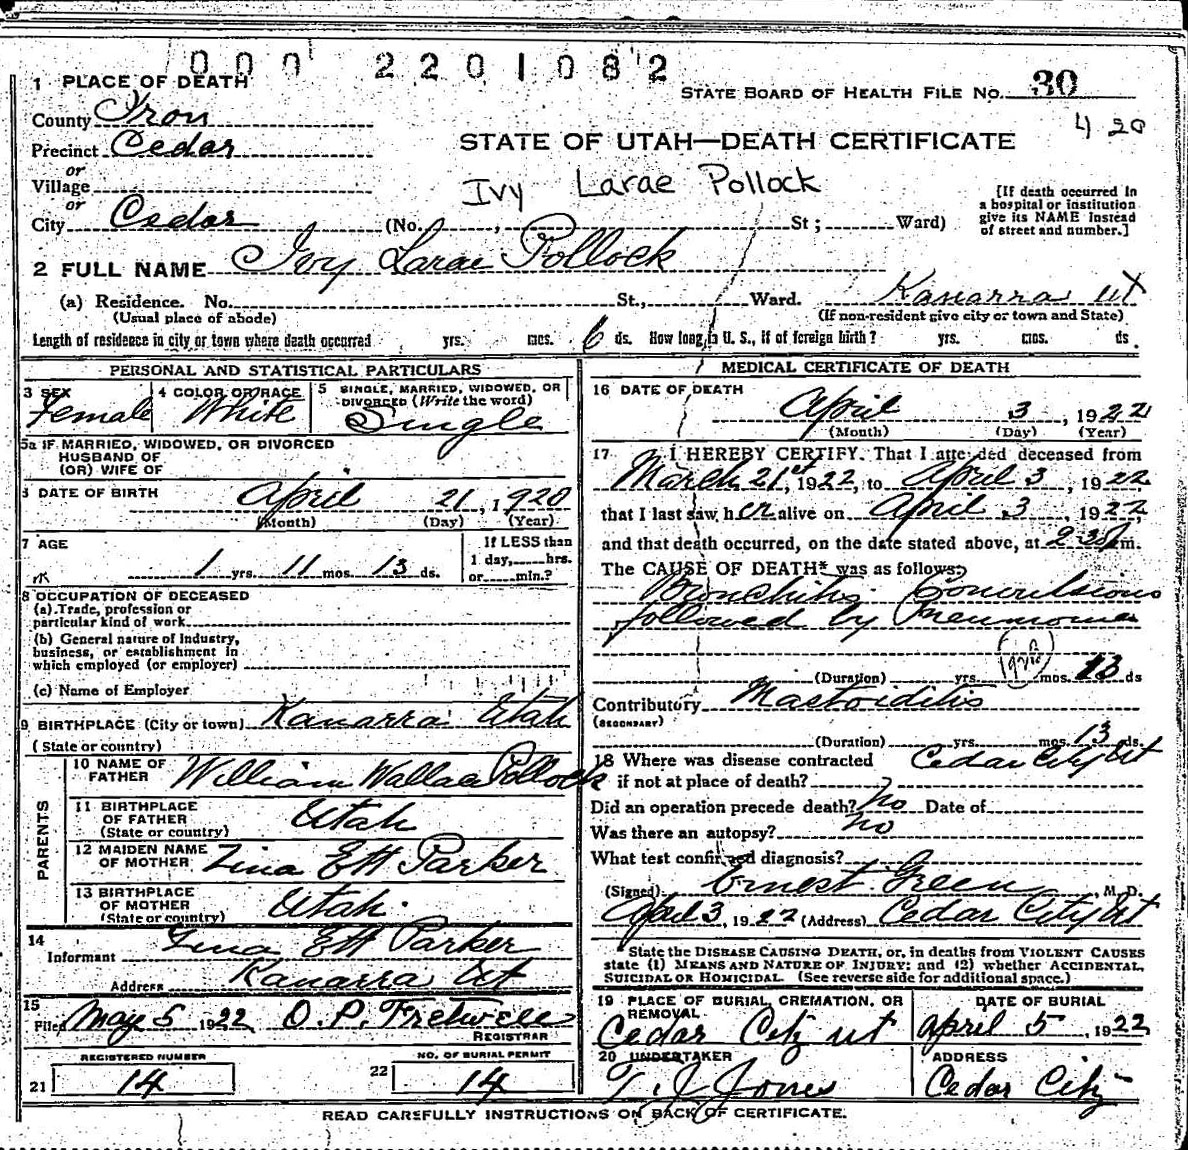 000 2201082
1 PLACE OF DEATH
STATE BOARD OF HEALTH FILE No. 30
County Iron
4 20
Precinct Cedar
STATE OF UTAH—DEATH CERTIFICATE
or
Village
Ivy Larae Pollock
or
City Cedar (No. , St ; Ward)
[If death occurred in
a hospital or institution
give its NAME instead
of street and number.]
2 FULL NAME Ivy Larae Pollock
(a) Residence. No. St., Ward. Kanarra Ut
(Usual place of abode) (If non-resident give city or town and State)
Length of residence in city or town where death occurred yrs. mos. 6 ds. How long in U. S., if of foreign birth? yrs. mos. ds.
PERSONAL AND STATISTICAL PARTICULARS
3 SEX Female
4 COLOR OR RACE White
5 SINGLE, MARRIED, WIDOWED, OR
DIVORCED (Write the word)
Single
5a IF MARRIED, WIDOWED, OR DIVORCED
HUSBAND OF
(OR) WIFE OF
6 DATE OF BIRTH April 21, 1920
(Month) (Day) (Year)
7 AGE
1 yrs. 11 mos. 13 ds.
If LESS than
1 day, hrs.
or min.?
8 OCCUPATION OF DECEASED
(a) Trade, profession or
particular kind of work
(b) General nature of industry,
business, or establishment in
which employed (or employer)
(c) Name of Employer
9 BIRTHPLACE (City or town) Kanarra Utah
(State or country)
PARENTS
10 NAME OF
FATHER William Wallace Pollock
11 BIRTHPLACE
OF FATHER Utah
(State or country)
12 MAIDEN NAME
OF MOTHER Zina Ett Parker
13 BIRTHPLACE
OF MOTHER Utah.
(State or country)
14
Informant Zina Ett Parker
Address Kanarra Ut
15
Filed May 5 1922 O. P. Fretwell
REGISTRAR
REGISTERED NUMBER
21 14
NO. OF BURIAL PERMIT
22 14
MEDICAL CERTIFICATE OF DEATH
16 DATE OF DEATH
April 3, 1922
(Month) (Day) (Year)
17 I HEREBY CERTIFY. That I attended deceased from
March 21st, 1922, to April 3, 1922
that I last saw her alive on April 3, 1922
and that death occurred, on the date stated above, at m.
The CAUSE OF DEATH* was as follows:
Bronchitis Convulsions
followed by Pneumonia
(Duration) yrs. mos. 13 ds
Contributory Mastoiditis
(SECONDARY)
(Duration) yrs. mos. 13 ds.
18 Where was disease contracted Cedar City Ut
if not at place of death?
Did an operation precede death? No Date of
Was there an autopsy? no
What test confirmed diagnosis?
(Signed) Ernest Green, M. D.
April 3, 1922 (Address) Cedar City Ut
*State the DISEASE CAUSING DEATH, or, in deaths from VIOLENT CAUSES
state (1) MEANS AND NATURE OF INJURY; and (2) whether ACCIDENTAL,
SUICIDAL OR HOMICIDAL. (See reverse side for additional space.)
19 PLACE OF BURIAL, CREMATION, OR
REMOVAL
Cedar City Ut
DATE OF BURIAL
April 5, 1922
20 UNDERTAKER
T. J. Jones
ADDRESS
Cedar City
READ CAREFULLY INSTRUCTIONS ON BACK OF CERTIFICATE.